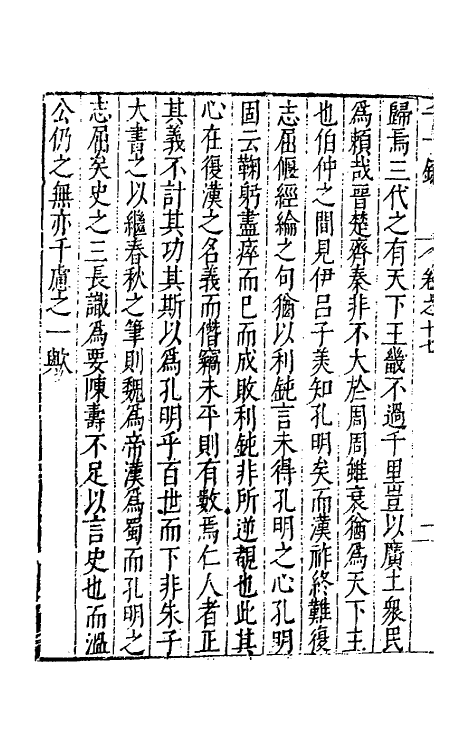 卷之十七
二
歸焉三代之有天下王畿不過千里豈以廣土衆民
爲頼哉晉楚齊秦非不大於周周雖衰猶爲天下王
也伯仲之間見伊吕子美知孔明矣而漢祚終難復
志屈偃經綸之句猶以利鈍言未得孔明之心孔明
固云鞠躬盡瘁而已而成敗利鈍非所逆覩也此其
心在復漢之名義而僭竊未平則有數焉仁人者正
其義不計其功其斯以爲孔明乎百世而下非朱子
大書之以繼春秋之筆則魏爲帝漢爲蜀而孔明之
志屈矣史之三長識爲要陳壽不足以言史也而温
公仍之無亦千慮之一歟